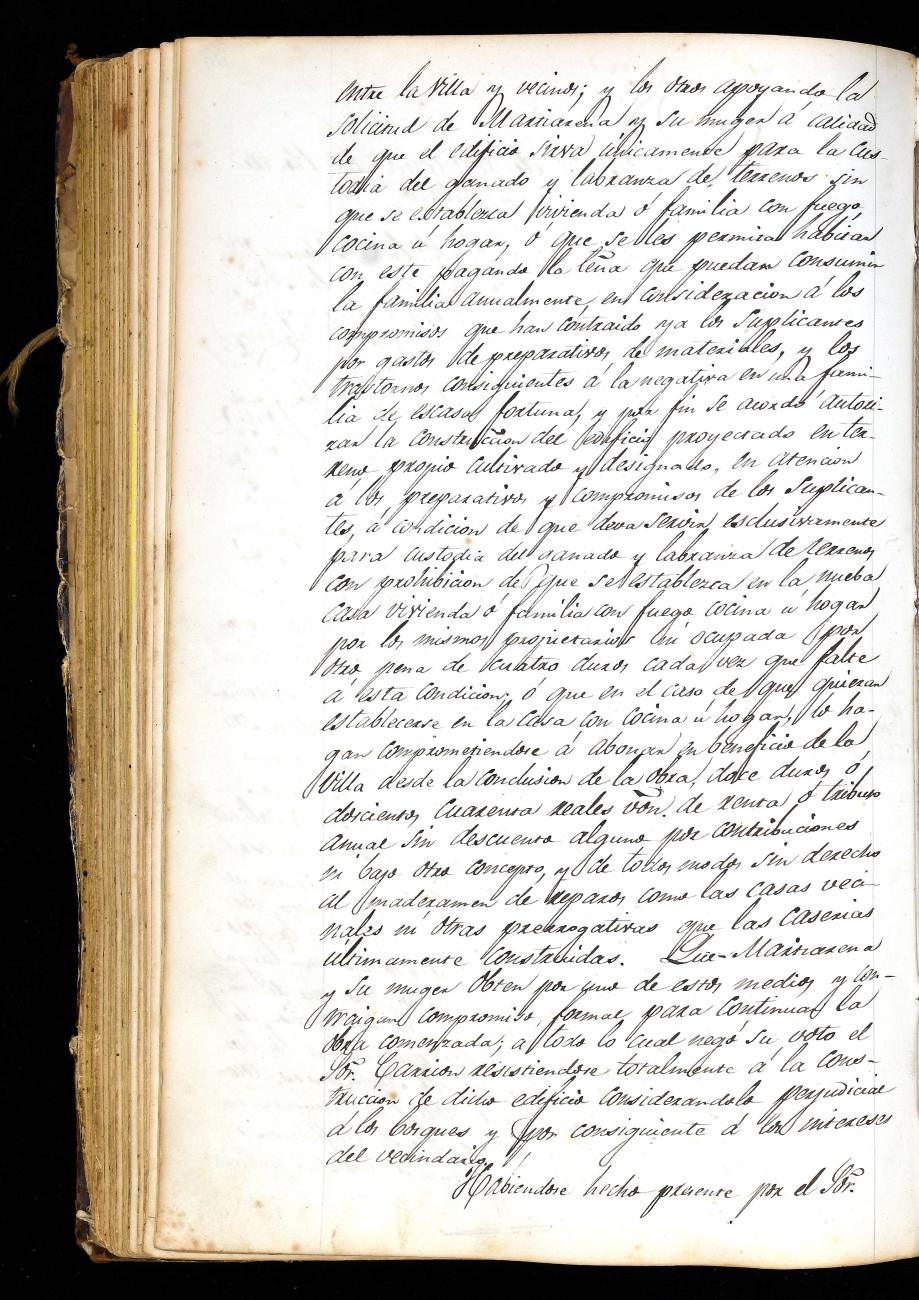 entre la villa y vecinos; y los otros apoyando la
solicitud de Martiarena y su muger á calidad
de que el edificio sirva únicamente para la cus-
todia del ganado y labranza de terrenos sin
que se establezca vivienda ó familia con fuego,
cocina ú hogar, ó que se les permita habitar
con este pagando la leña que puedan consumir
la familia anualmente, en consideracion á los
compromisos que han contraido ya los Suplicantes
por gastos de preparativos de materiales, y los
trastornos consiguientes á la negativa en una fami-
lia de escasa fortuna, y por fin se acordó autori-
zar la construccion del edificio proyectado en ter-
reno propio cultivado y designado, en atencion
á los preparativos y compromisos de los Suplican-
tes, á condicion de que deva servir esclusivamente
para custodia del ganado y labranza de terrenos
con prohibicion de que se establezca en la nueba
casa vivienda ó familia con fuego cocina ú hogar
por los mismos propietarios ni ocupada por
otro pena de cuatro duros cada vez que falte
á esta condicion; ó que en el caso de que quieran
establecerse en la casa con cocina ú hogar, lo ha-
gan comprometiendose á abonar en beneficio de la
Villa desde la conclusion de la obra, doce duros ó
doscientos cuarenta reales von. de renta ó tributo
anual sin descuento alguno por contribuciones
ni bajo otro concepto, y de todos modos sin derecho
al maderamen de reparos como las casas veci-
nales ni otras prerrogativas que las caserias
últimamente construidas. Que Martiarena
y su muger obten por uno de estos medios y con-
traigan compromiso formal para continuar la
obra comenzada; a todo lo cual negó su voto el
Sór. Carrion resistiendose totalmente á la cons-
truccion de dicho edificio considerandolo perjudicial
á los bosques y por consiguiente á los intereses
del vecindario.
Habiendose hecho presente por el Sór.